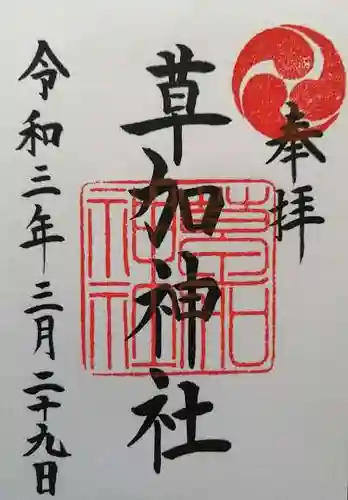 奉拝
草加神社
令和三年三月二十九日
草加
神社